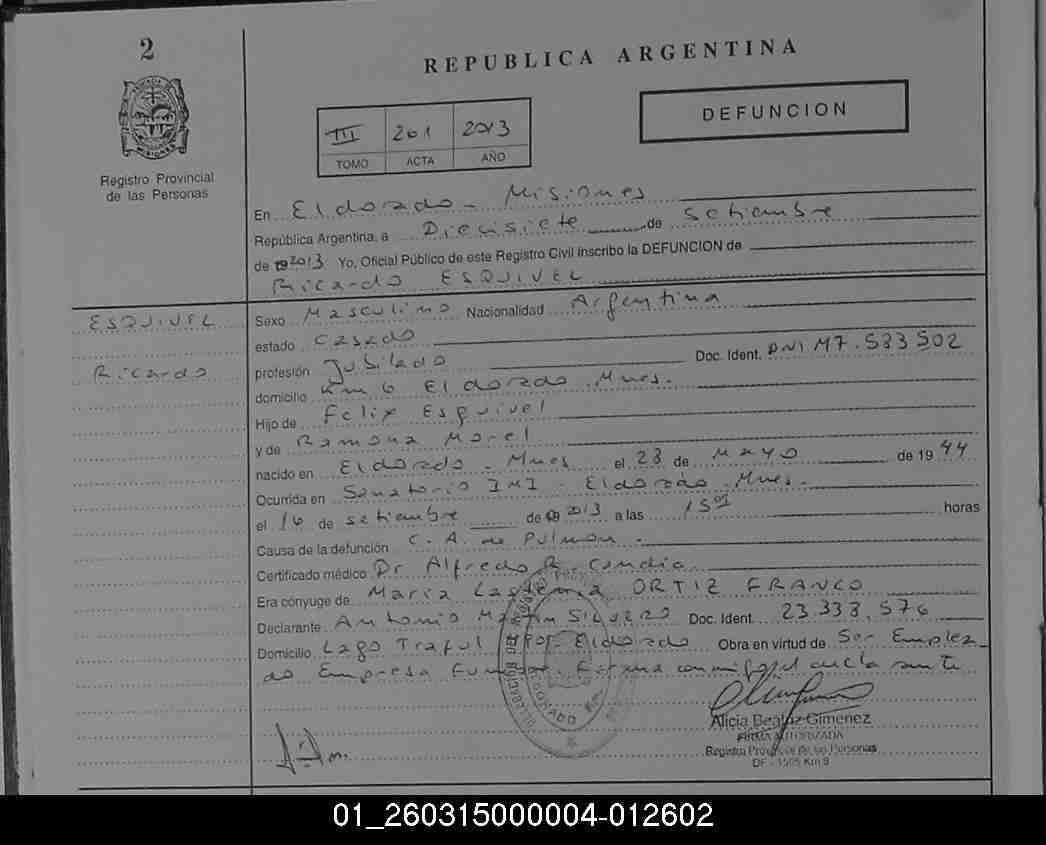 2
REPUBLICA ARGENTINA
DEFUNCION
III 201 2013
TOMO ACTA AÑO
Registro Provincial
de las Personas
En Eldorado - Misiones
República Argentina, a Diecisiete de Setiembre
de 2013 Yo, Oficial Público de este Registro Civil inscribo la DEFUNCION de
Ricardo ESQUIVEL
ESQUIVEL
Ricardo
Sexo Masculino Nacionalidad Argentina
estado Casado
profesión Jubilado Doc. Ident. DNI M7.533502
domicilio Km 6 Eldorado Mnes.
Hijo de Felix Esquivel
y de Ramona Morel
nacido en Eldorado - Mnes el 23 de Mayo de 1944
Ocurrida en Sanatorio IMI - Eldorado Mnes.
el 16 de setiembre de 2013 a las 15 horas
Causa de la defunción C. A. de Pulmon.
Certificado médico Dr Alfredo R. Candia
Era cónyuge de Maria ORTIZ FRANCO
Declarante Antonio Martin SILVERO Doc. Ident. 23.333.576
Domicilio Lago Traful Eldorado Obra en virtud de Ser Emplea_
do Empresa Firma
Alicia Beatriz Gimenez
FIRMA AUTORIZADA
Registro Provincial de las Personas
01_260315000004-012602